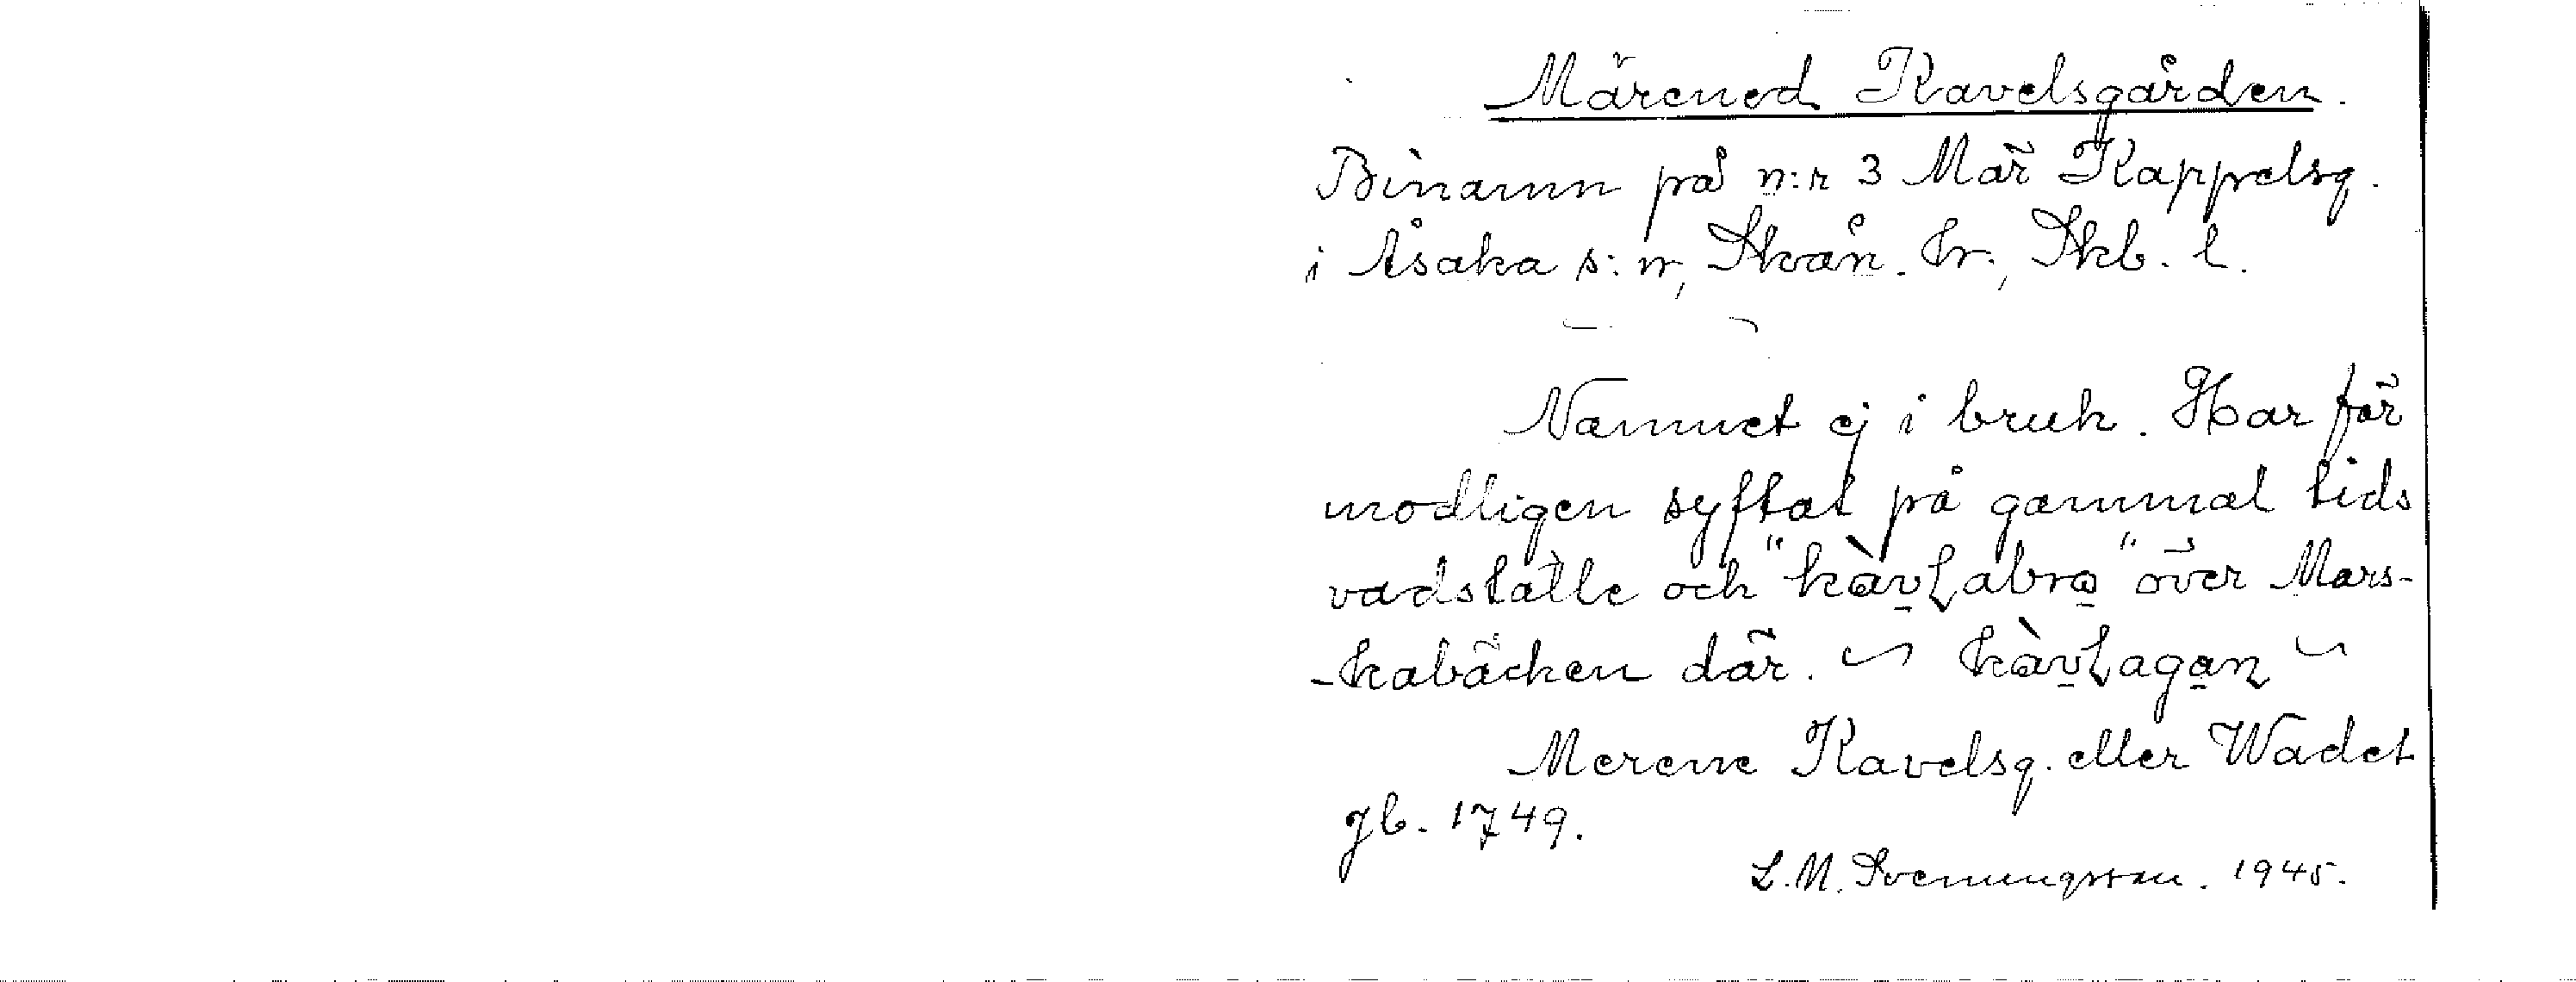 Märened Kavelsgården.
Binamn på n:r 3 Mär Kappelsg.
i Åsaka s:n, Skån. hr., Skb. l.
Namnet ej i bruk. Har för
modligen syftat på gammal tids
vadställe och "kàvɭabro" över Mars-
-kabäcken där. ~ kàvɭagan ~
Merene Kavelsg. eller Wadet
jb. 1749.
L.M. Svenungsson. 1945.